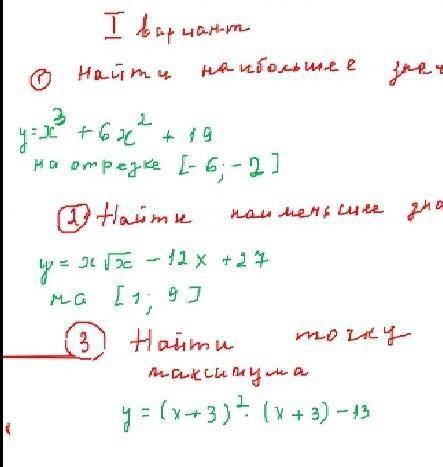 I вариант
① Найти наибольшее знач
y=x³ + 6x² + 19
на отрезке [-6; -2]
② Найти наименьшее зна
y = x√x - 12x + 27
на [1; 9]
③ Найти точку
максимума
y = (x+3)² · (x+3) - 13